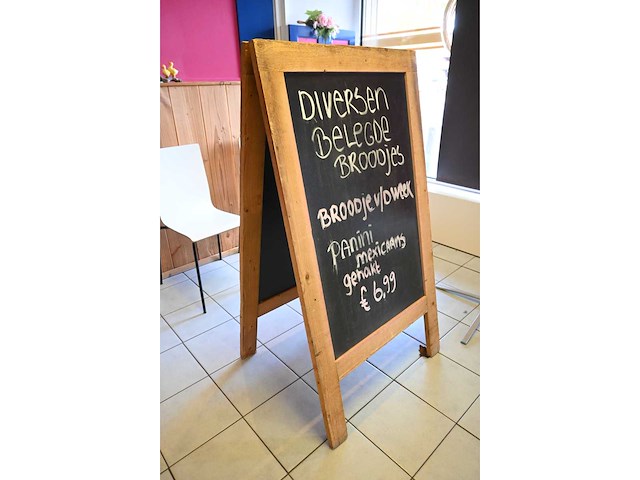 DIVERSEN
BELEGDE
BROODJES
BROODJE V/D WEEK
PANINI
MEXICAANS
gehakt
€ 6,99